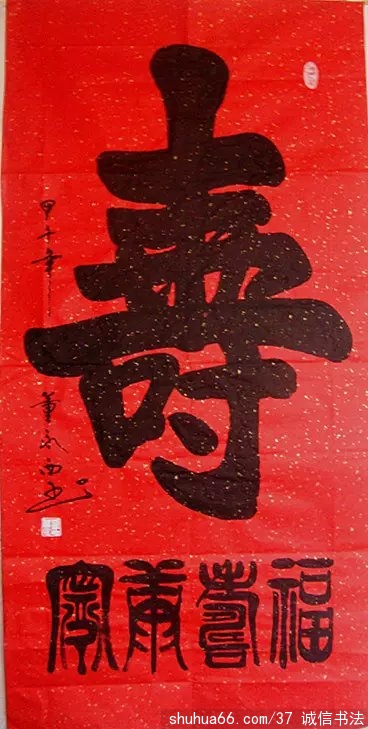 壽
甲午年
福壽康寧
shuhua66.com/37 诚信书法